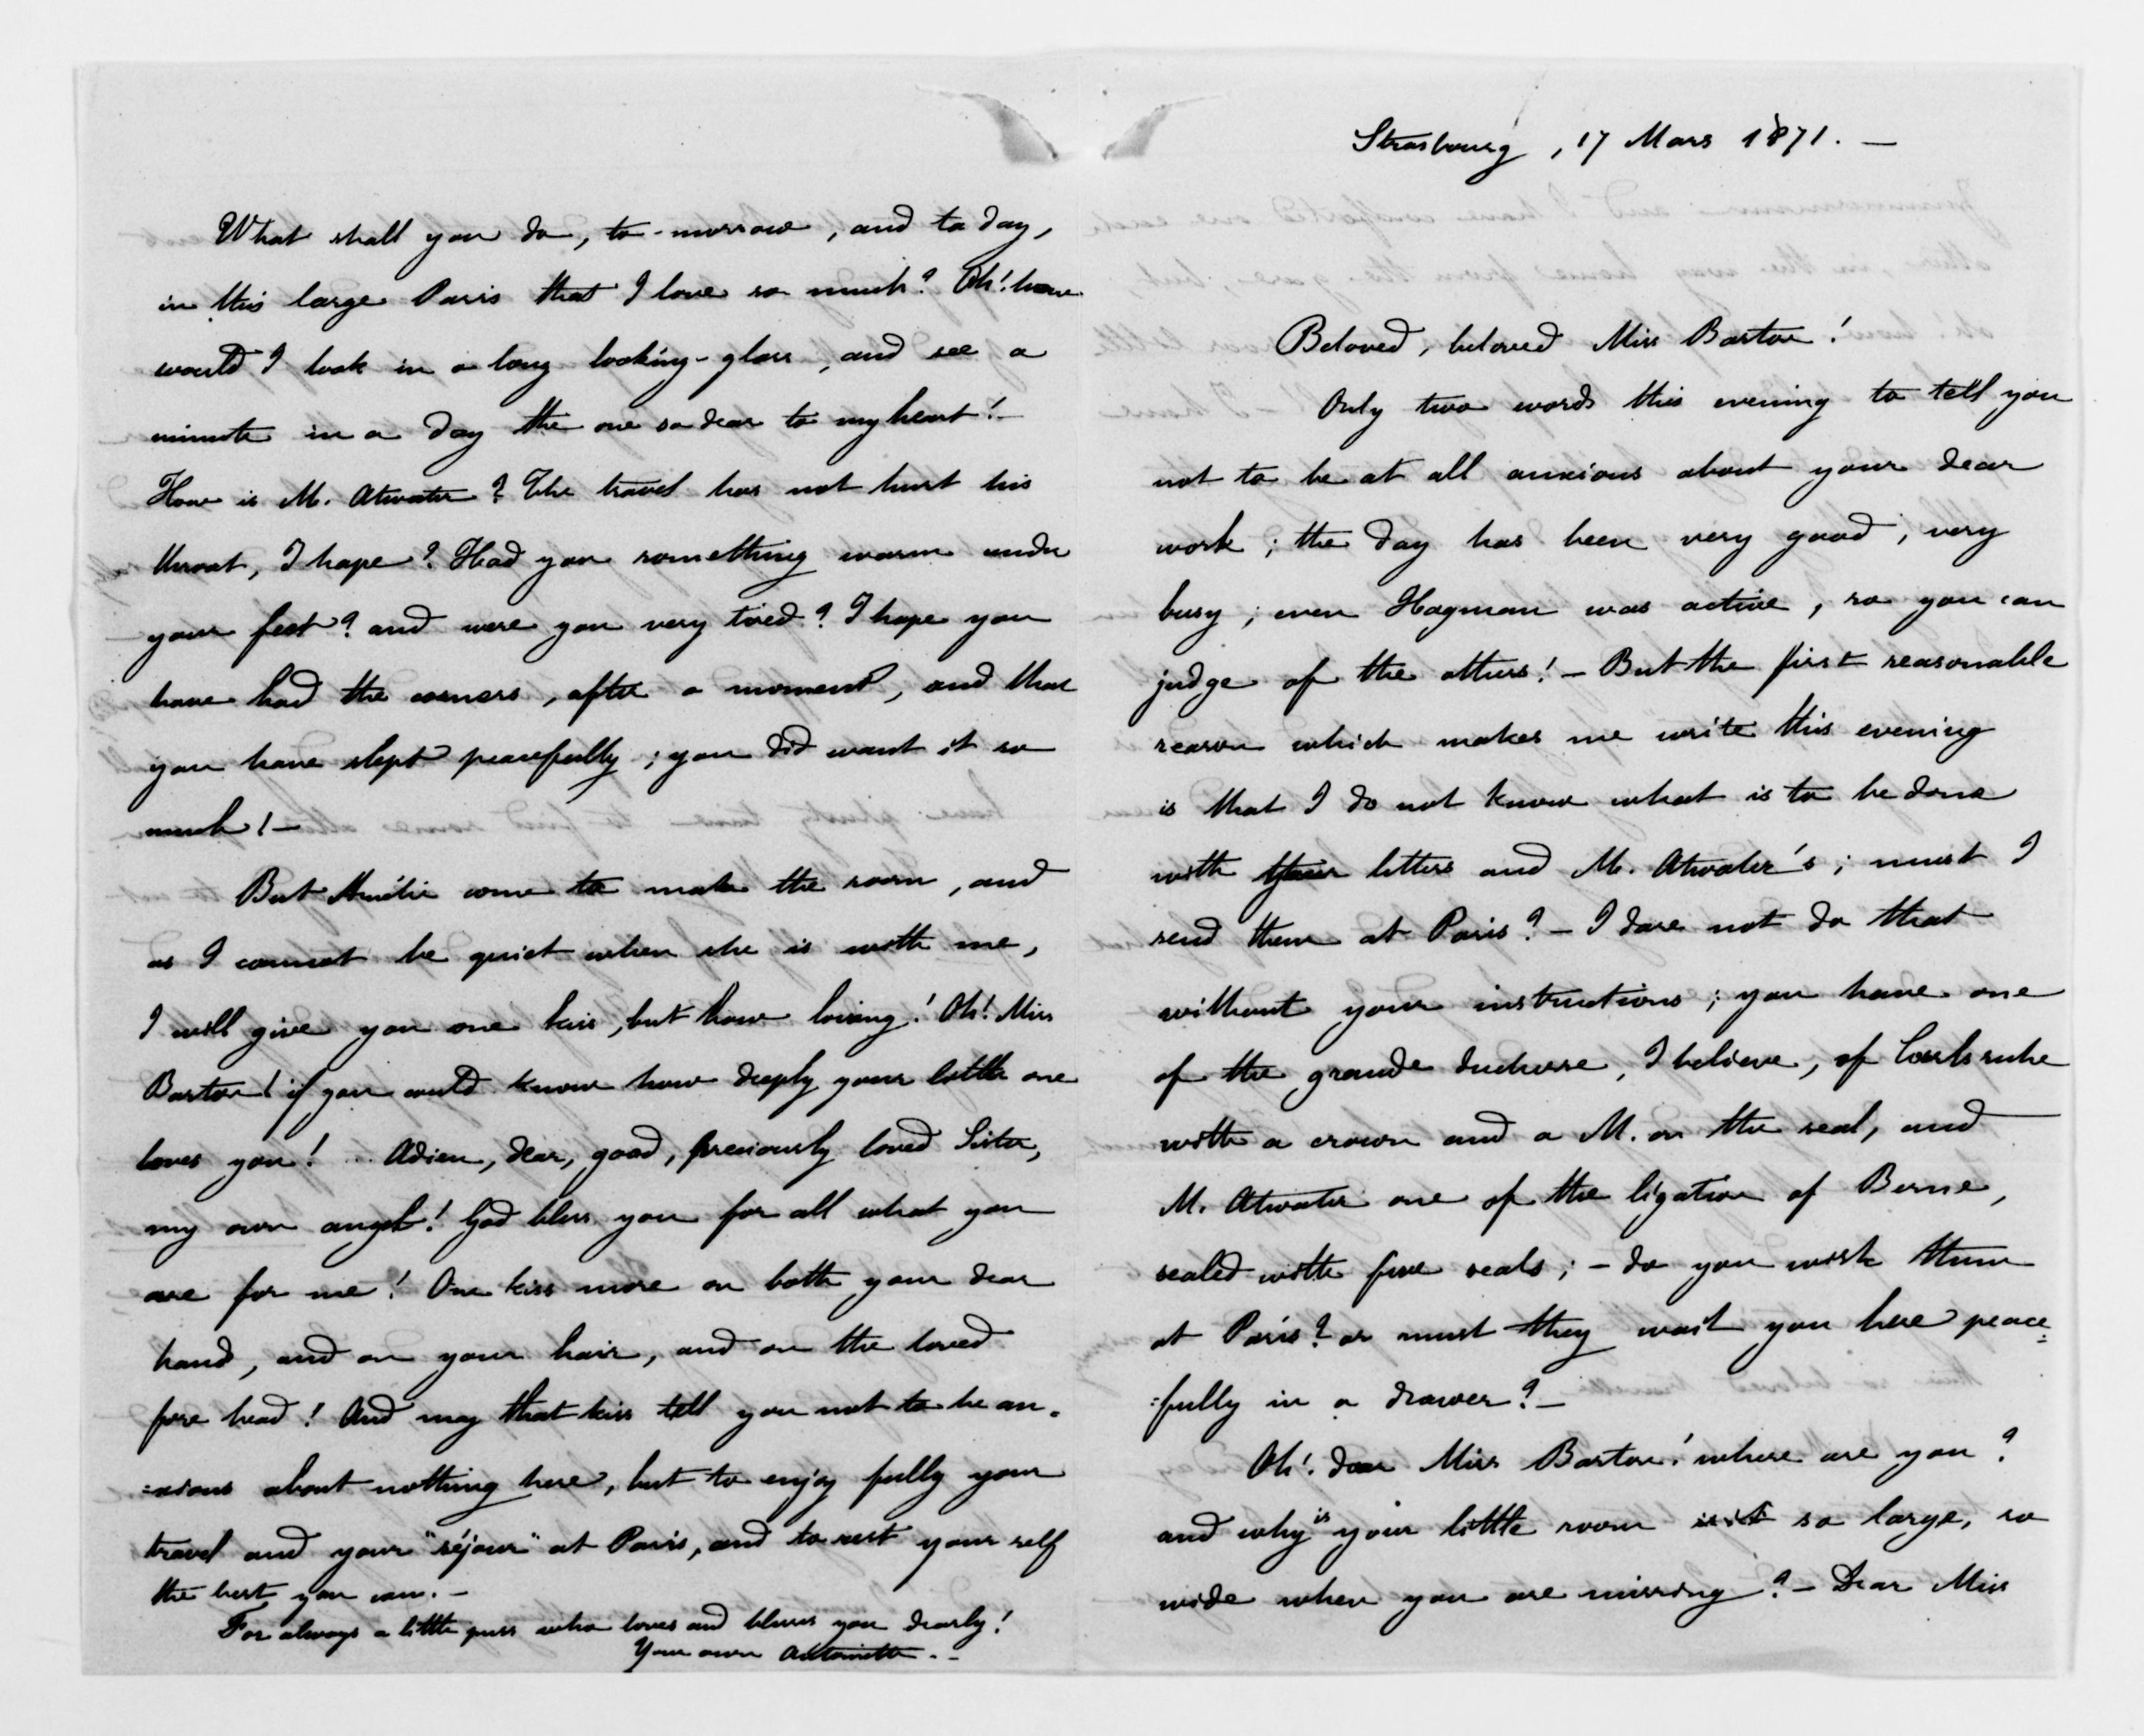 Strasbourg, 17 Mars 1871. —
Beloved, beloved Miss Barton!
Only two words this evening to tell you
not to be at all anxious about your dear
work; the day has been very good, very
busy; even Hagman was active, so you can
judge of the others! — But the first reasonable
reason which makes me write this evening
is that I do not know what is to be done
with your letters and M. Atwater's; must I
send them at Paris? — I dare not do that
without your instructions; you have one
of the grande duchesse, I believe, of Carlsruhe
with a crown and a M. on the seal, and
M. Atwater one of the ligation of Berne,
sealed with five seals; — do you wish them
at Paris? or must they wait you here peace=
=fully in a drawer? —
Oh! dear Miss Barton! where are you?
and why is your little room so large, so
wide when you are missing? — Dear Miss
What shall you do, to-morrow, and to day,
in this large Paris that I love so much? Oh! how
would I look in a long looking-glass, and see a
minute in a day the one so dear to my heart! —
How is M. Atwater? The travel has not hurt his
throat, I hope? Had you something warm under
your feet? and were you very tired? I hope you
have had the corners, after a moment, and that
you have slept peacefully; you did want it so
much! —
But Amélie come to make the room, and
as I cannot be quiet when she is with me,
I will give you one kiss, but how loving! Oh! Miss
Barton! if you could know how deeply your little one
loves you! .. Adieu, dear, good, preciously loved Sister,
my own angel! God bless you for all what you
are for me! One kiss more on both your dear
hand, and on your hair, and on the loved
fore head! And may that kiss tell you not to be an=
=xious about nothing here, but to enjoy fully your
travel and your "séjour" at Paris, and to rest your self
the best you can. —
For always a little puss who loves and blesses you dearly!
Your own Antoinette. —